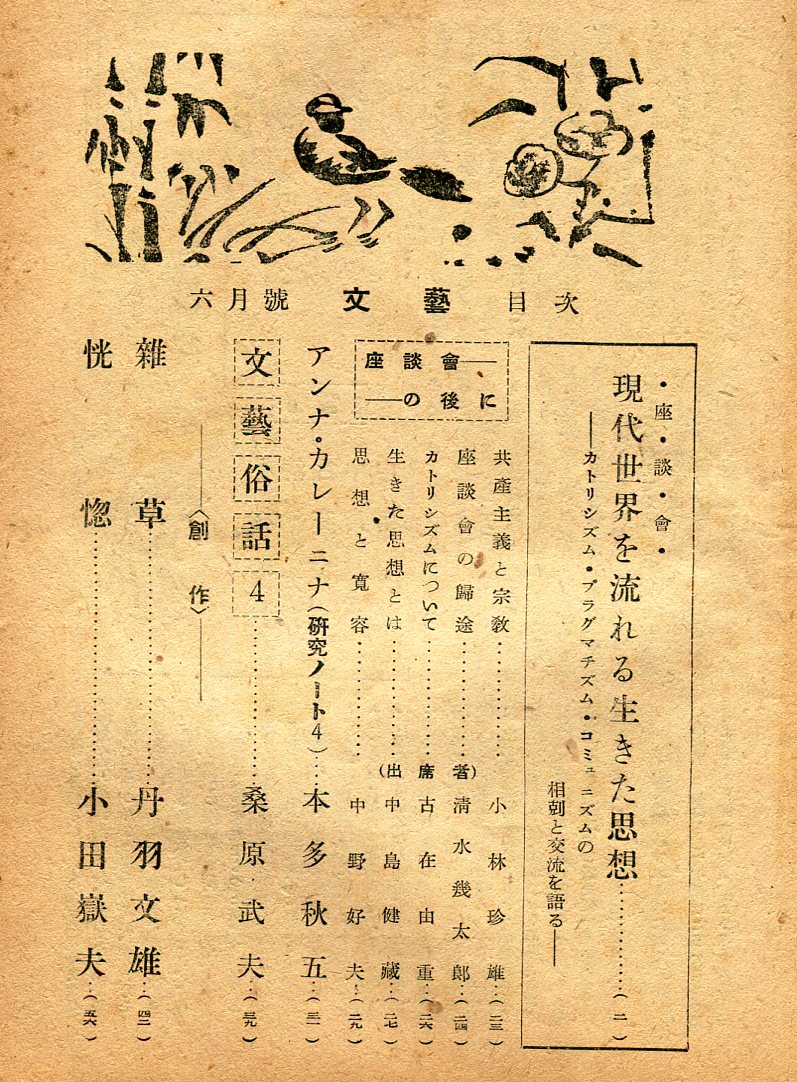 六月號 文藝 目次
・座・談・會・
現代世界を流れる生きた思想……………(二)
――カトリシズム・プラグマチズム・コミュニズムの
相剋と交流を語る――
座談會――
――の後に
共產主義と宗教…………小林珍雄…(二三)
座談會の歸途…………淸水幾太郎…(二四)
カトリシズムについて…………古在由重…(二六)
生きた思想とは…………中島健藏…(二七)
思想と寬容…………中野好夫…(二九)
(出席者)
アンナ・カレーニナ(硏究ノート4)…本多秋五…(三一)
文藝俗話4…………桑原武夫…(三九)
――〈創作〉――
雜草…………丹羽文雄…(四二)
恍惚…………小田嶽夫…(五六)